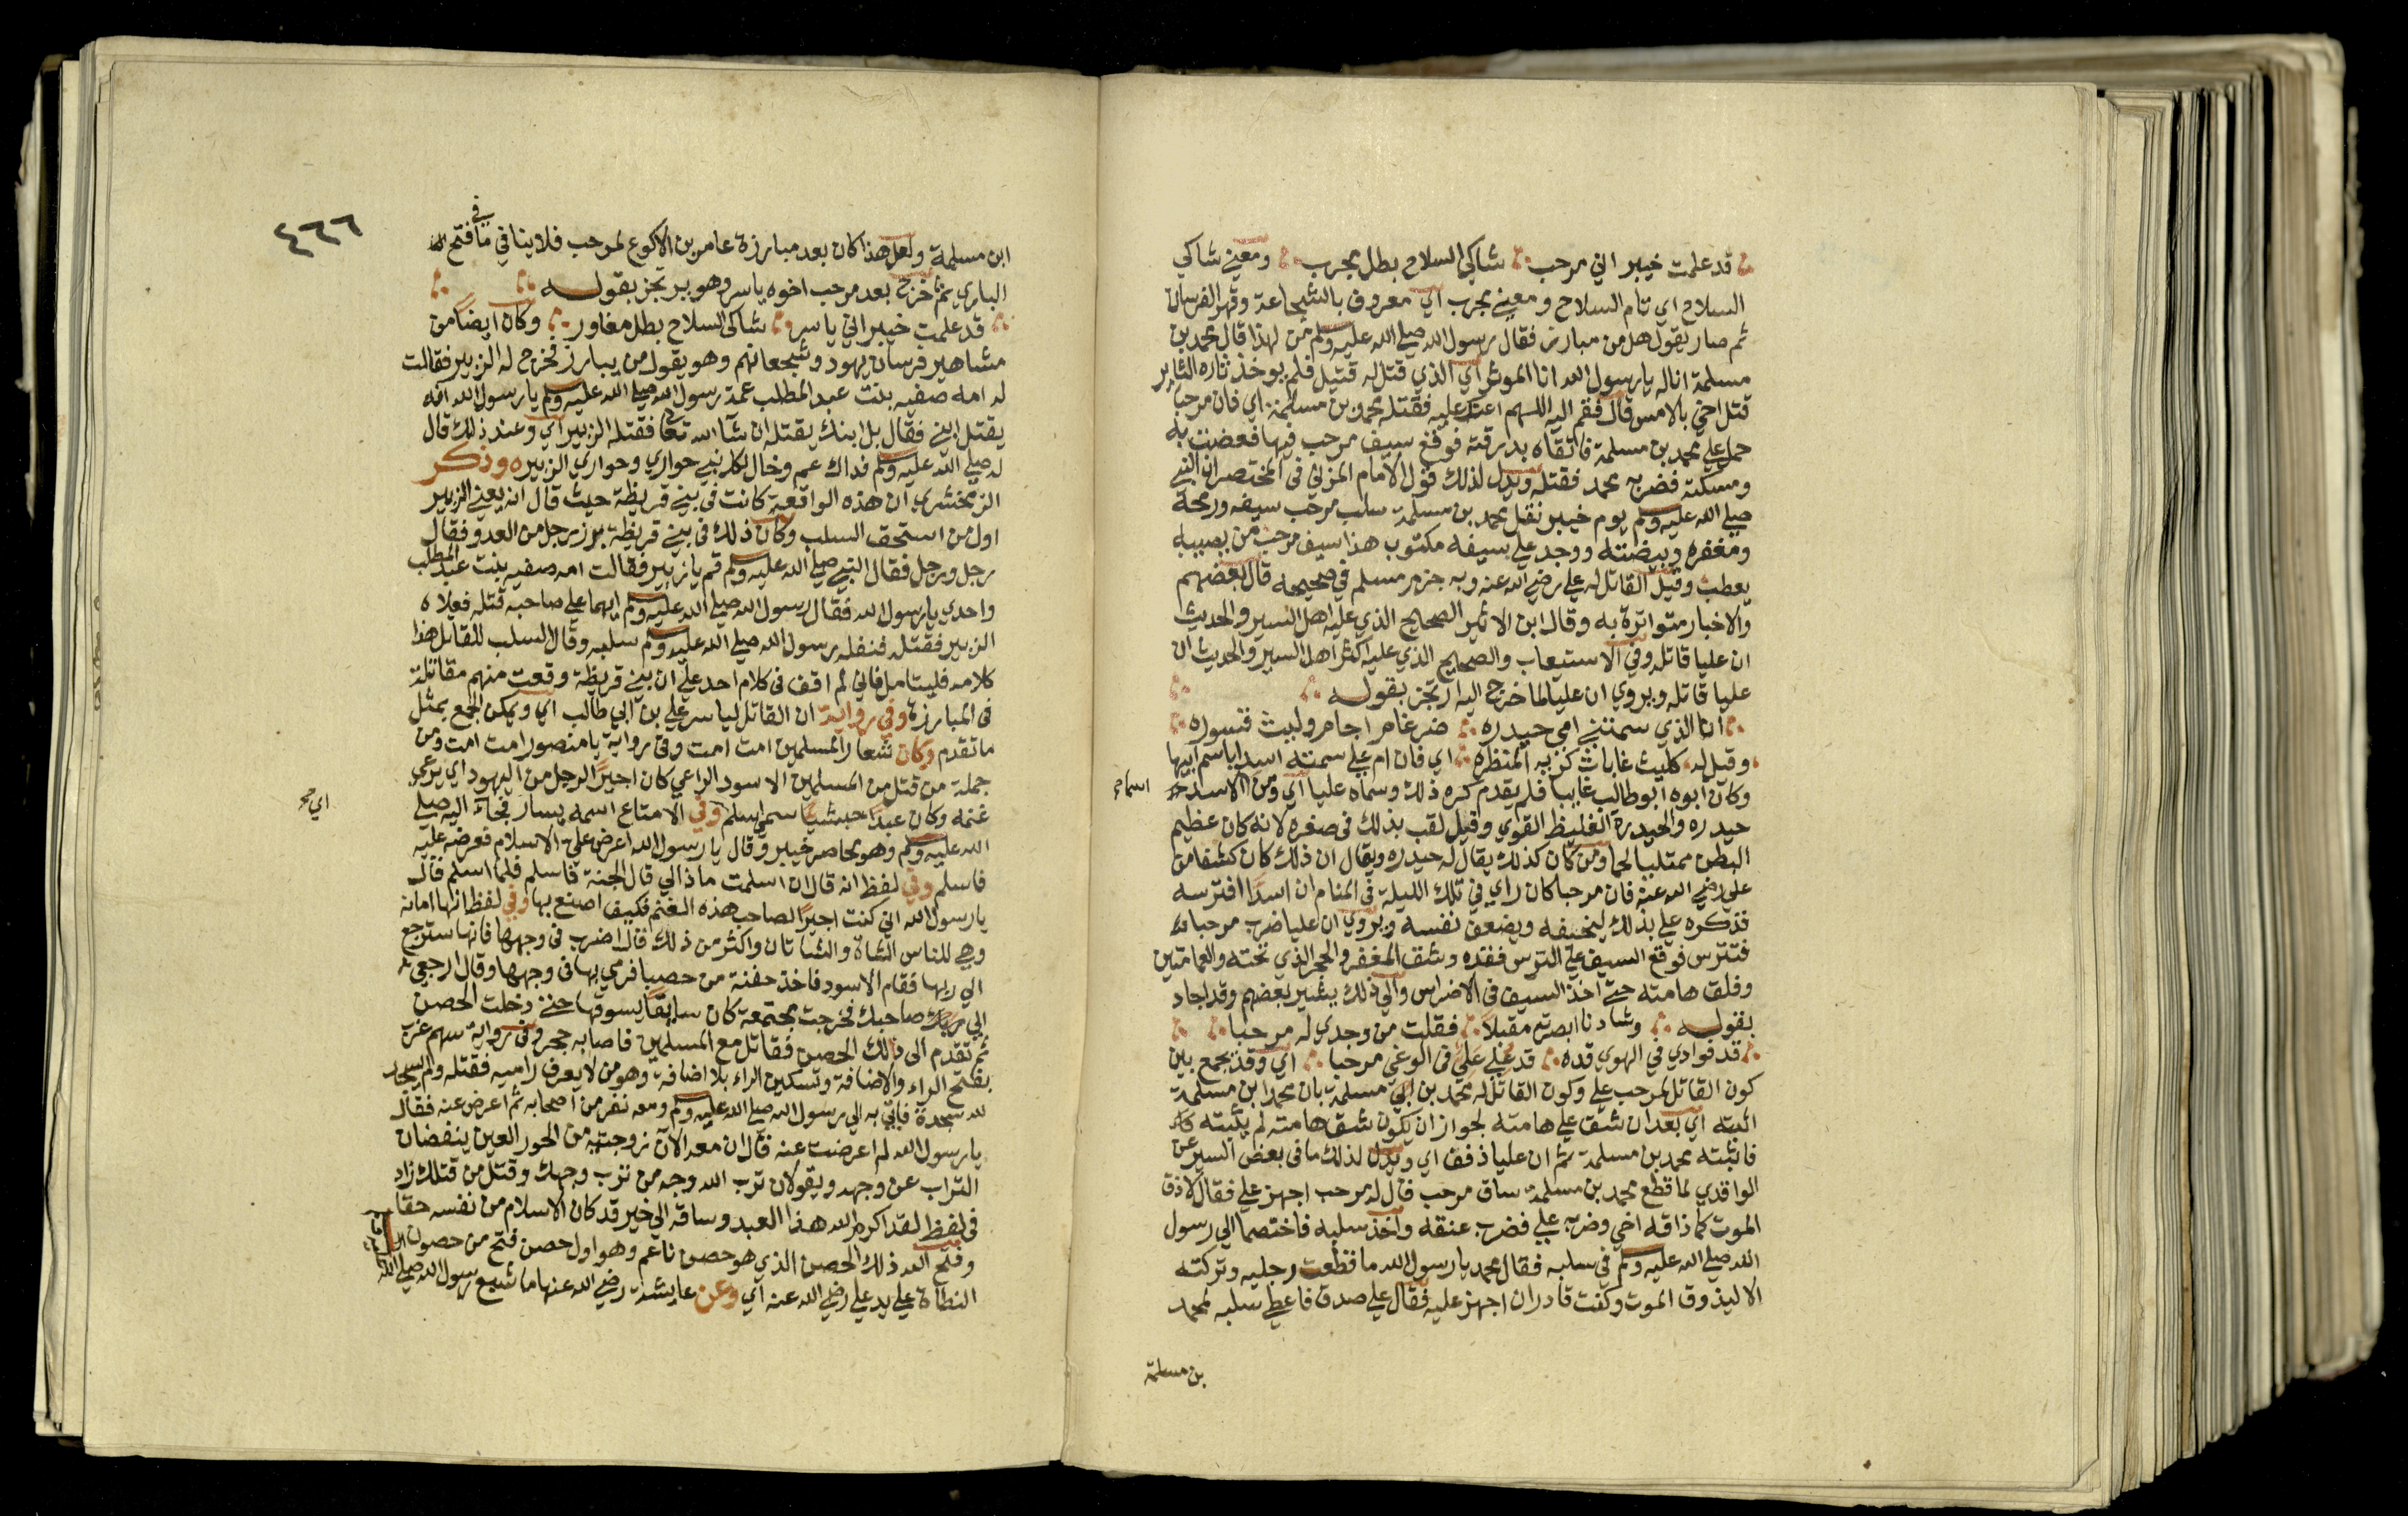 قد علمت خيبر اني مرحب شاكي السلاح بطل مجرب ومعني شاكي
السلاح اي تام السلاح ومعني مجرب اي معروف بالشجاعة وقهر الفرسان
ثم صار يقول هل من مبارز فقال رسول الله صلي الله عليه وسلم من لهذا قال محمد بن
مسلمة انا له يارسول الله انا الموتور اي الذي قتل له قتيل فلم يوخذ بثاره الثاير
قتل اخي بالامس قال فقم اليه اللهم اعنه عليه فقتله محمد بن مسلمة اي فان مرحبا
حمل علي محمد بن مسلمة فاتقاه بدرقته فوقع سيف مرحب فيها فعضت به
ومسكته فضربه محمد فقتله ويدل لذلك قول الامام المزني في المختصر ان النبي
صلي الله عليه وسلم يوم خيبر نفل محمد بن مسلمة سلب مرحب سيفه ورمحه
ومغفره وبيضته ووجد علي سيفه مكتوب هذا سيف مرحب من يصيبه
يعطب وقيل القاتل له علي رضي الله عنه وبه جزم مسلم في صحيحه قال بعضهم
والاخبار متواترة به وقال ابن الاثير الصحيح الذي عليه اهل السير والحديث
ان عليا قاتله وفي الاستيعاب والصحيح الذي عليه اكثر اهل السير والحديث ان
عليا قاتله ويروي ان عليا لما خرج اليه ارتجز بقوله
انا الذي سمتني امي حيدره ضرغام اجام وليث قسوره
وقيل له كليث غابات كريه المنظره اي فان ام علي سمته اسدا باسم ابيها
وكان ابوه ابو طالب غايبا فلما يقدم كره ذلك وسماه عليا اي ومن الاسد
اسماء
حيدره والحيدرة الغليظ القوي وقيل لقب بذلك في صغره لانه كان عظيم
البطن ممتليا لحما ومن كان كذلك يقال له حيدره ويقال ان ذلك كان كشفا من
علي رضي الله عنه فان مرحبا كان راي في تلك الليلة في المنام ان اسدا افترسه
فذكره علي بذلك ليخيفه ويضعف نفسه ويروي ان عليا ضرب مرحبا
فتترس فوقع السيف علي الترس فقده وشق المغفر والحجر الذي تحته والعمامتين
وفلق هامته حتي اخذ السيف في الاضراس والي ذلك يشير بعضهم وقد اجاد
بقوله وشادنا ابصرته مقبلا فقلت من وجدي له مرحبا
قد فوادي في الهوي قده قد علي في الوغي مرحبا اي وقد يجمع بين
كون القاتل لمرحب علي وكون القاتل له محمد بن مسلمة بان محمد ابن مسلمة
اثبته اي بعد ان شق علي هامته لجواز ان يكون شق هامته لم يثبته
فاثبته محمد بن مسلمة ثم ان عليا ذفف اي ويدل لذلك ما في بعض السير عن
الواقدي لما قطع محمد بن مسلمة ساق مرحب قال له مرحب اجهز علي فقال لا ذق
الموت كما ذاقه اخي وضربه علي فضرب عنقه واخذ سلبه فاختصما الي رسول
الله صلي الله عليه وسلم في سلبه فقال محمد يا رسول الله ما قطعت رجليه وتركته
الا ليذوق الموت وكنت قادر ان اجهز عليه فقال علي صدق فاعطي سلبه لمحمد
بن مسلمة
٤٦٦
ابن مسلمة ولعل هذا كان بعد مبارزة عامر بن الاكوع لمرحب فلا ينافي ما في فتح
الباري ثم خرج بعد مرحب اخوه ياسر وهو يرتجز بقوله
قد علمت خيبر اني ياسر شاكي السلاح بطل مغاور وكان ايضا من
مشاهير فرسان يهود وشجعانهم وهو يقول من يبارز فخرج له الزبير فقالت
له امه صفيه بنت عبد المطلب عمة رسول الله صلي الله عليه وسلم يا رسول الله انه
يقتل ابني فقال بل ابنك يقتله ان شا الله تعالي فقتله الزبير اي وعند ذلك قال
له صلي الله عليه وسلم فداك عم وخال لكل نبي حواري وحواري الزبير وذكر
الزمخشري ان هذه الواقعة كانت في بني قريظة حيث قال انه يعني الزبير
اول من استحق السلب وكان ذلك في بني قريظة برز رجل من العدو فقال
رجل ورجل فقال النبي صلي الله عليه وسلم قم يا زبير فقالت امه صفيه بنت عبد المطلب
واحدي يارسول الله فقال رسول الله صلي الله عليه وسلم ايهما علي صاحبه قتله فعلاه
الزبير فقتله فنفله رسول الله صلي الله عليه وسلم سلبه وقال السلب للقاتل هذا
كلامه فليتامل فاني لم اقف في كلام احد علي ان بني قريظة وقعت منهم مقاتلة
في المبارزة وفي رواية ان القاتل لياسر علي بن ابي طالب اي ويمكن الجمع بمثل
ما تقدم وكان شعار المسلمين امت امت وفي رواية يا منصور امت امت ومن
جملة من قتل من المسلمين الاسود الراعي كان اجيرا لرجل من اليهود اي يرعي
غنمه وكان عبدا حبشيا يسمي اسلم وفي الامتاع اسمه يسار فجاء اليه صلي
اي
الله عليه وسلم وهو محاصر خيبر وقال يا رسول الله اعرض علي الاسلام فعرضه عليه
فاسلم وفي لفظ انه قال ان اسلمت ماذا لي قال الجنة فاسلم فلما اسلم قال
يارسول الله اني كنت اجيرا لصاحب هذه الغنم فكيف اصنع بها وفي لفظ انها امانة
وهي للناس الشاة والشاتان واكثر من ذلك قال اضرب في وجهها فانها سترجع
الي ربها فقام الاسود فاخذ حفنة من حصبا فرمي بها في وجهها وقال ارجعي
الي صاحبك فخرجت مجتمعة كان سايقا يسوقها حتي دخلت الحصن
ثم تقدم الي ذلك الحصن فقاتل مع المسلمين فاصابه حجر وفي رواية سهم غرب
بفتح الراء والاضافة وتسكين الراء بلا اضافة وهو من لا يعرف راميه فقتله ولم يسجد
لله سجدة فاتي به الي رسول الله صلي الله عليه وسلم ومعه نفر من اصحابه ثم اعرض عنه فقال
يا رسول الله لم اعرضت عنه قال ان معه الآن زوجتيه من الحور العين ينفضان
التراب عن وجهه ويقولان ترب الله وجه من ترب وجهك وقتل من قتلك زاد
في لفظ لقد اكرم الله هذا العبد وساقه الي خير قد كان الاسلام من نفسه حقا
وفتح الله ذلك الحصن الذي هو حصن ناعم وهو اول حصن فتح من حصون
النطاة علي يد علي رضي الله عنه اي وعن عايشة رضي الله عنها ما شبع رسول الله صلي الله